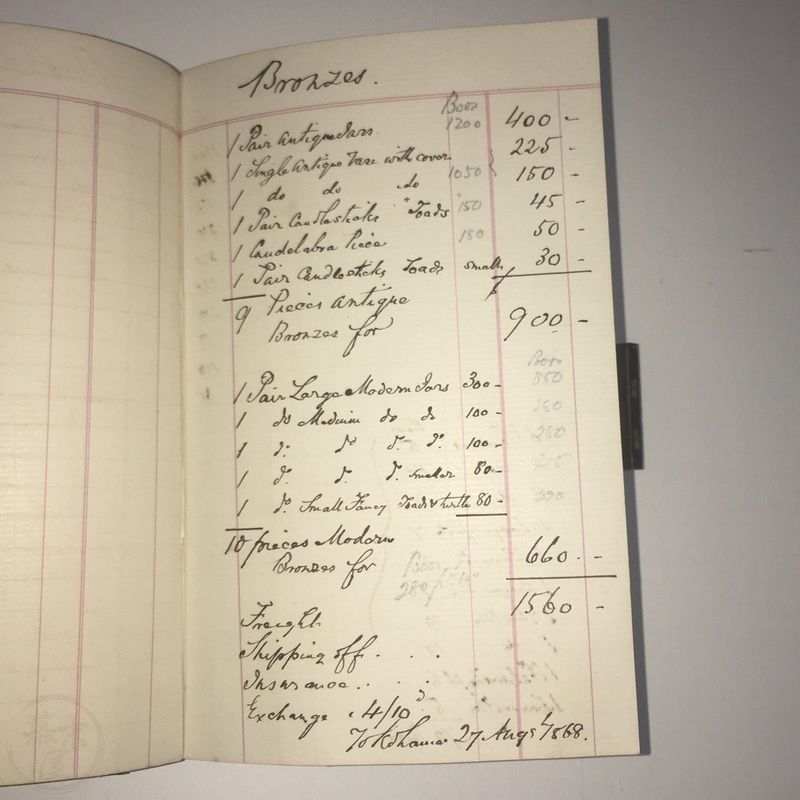 Bronzes.
Boos
1 Pair Antique Jars 1200 400 -
1 Single Antique Vase with cover 225 -
1 do do do 1050 150 -
1 Pair Candlesticks "Toads 150 45 -
1 Candelabra Piece 180 50 -
1 Pair Candlesticks Toads small 30 -
9 Pieces Antique
Bronzes for 900 -
Boos
1 Pair Large Modern Jars 300 - 850
1 do Medium do do 100 -
1 do do do do 100 - 280
1 do do do smaller 80 -
1 do Small Fancy Toads & turtle 80 -
10 pieces Modern
Bronzes for 660 -
Boos
280
1560 -
Freight
Shipping off . . .
Insurance . . .
Exchange . 4/10d
Yokohama 27 Augst 1868.